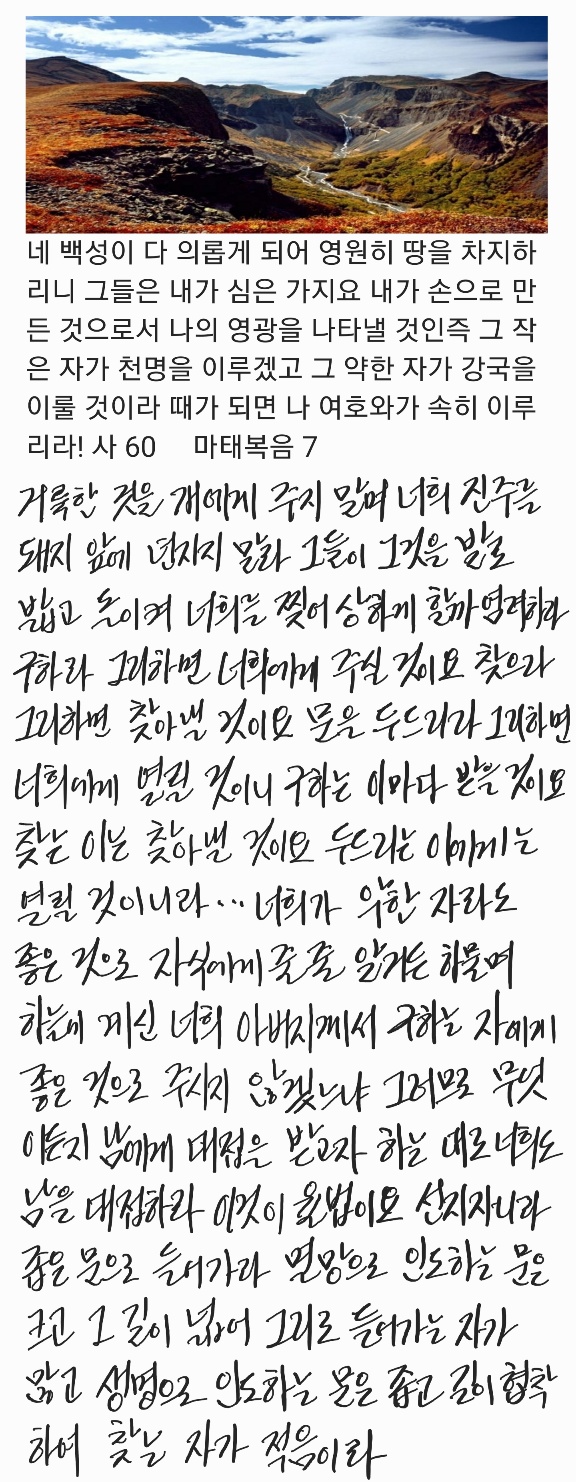 네 백성이 다 의롭게 되어 영원히 땅을 차지하
리니 그들은 내가 심은 가지요 내가 손으로 만
든 것으로서 나의 영광을 나타낼 것인즉 그 작
은 자가 천명을 이루겠고 그 약한 자가 강국을
이룰 것이라 때가 되면 나 여호와가 속히 이루
리라! 사 60 마태복음 7
거룩한 것을 개에게 주지 말며 너희 진주를
돼지 앞에 던지지 말라 그들이 그것을 발로
밟고 돌이켜 너희를 찢어 상하게 할까 염려하라
구하라 그리하면 너희에게 주실 것이요 찾으라
그리하면 찾아낼 것이요 문을 두드리라 그리하면
너희에게 열릴 것이니 구하는 이마다 받을 것이요
찾는 이는 찾아낼 것이요 두드리는 이에게는
열릴 것이니라... 너희가 악한 자라도
좋은 것으로 자식에게 줄 줄 알거든 하물며
하늘에 계신 너희 아버지께서 구하는 자에게
좋은 것으로 주시지 않겠느냐 그러므로 무엇
이든지 남에게 대접을 받고자 하는 대로 너희도
남을 대접하라 이것이 율법이요 선지자니라
좁은 문으로 들어가라 멸망으로 인도하는 문은
크고 그 길이 넓어 그리로 들어가는 자가
많고 생명으로 인도하는 문은 좁고 길이 협착
하여 찾는 자가 적음이라